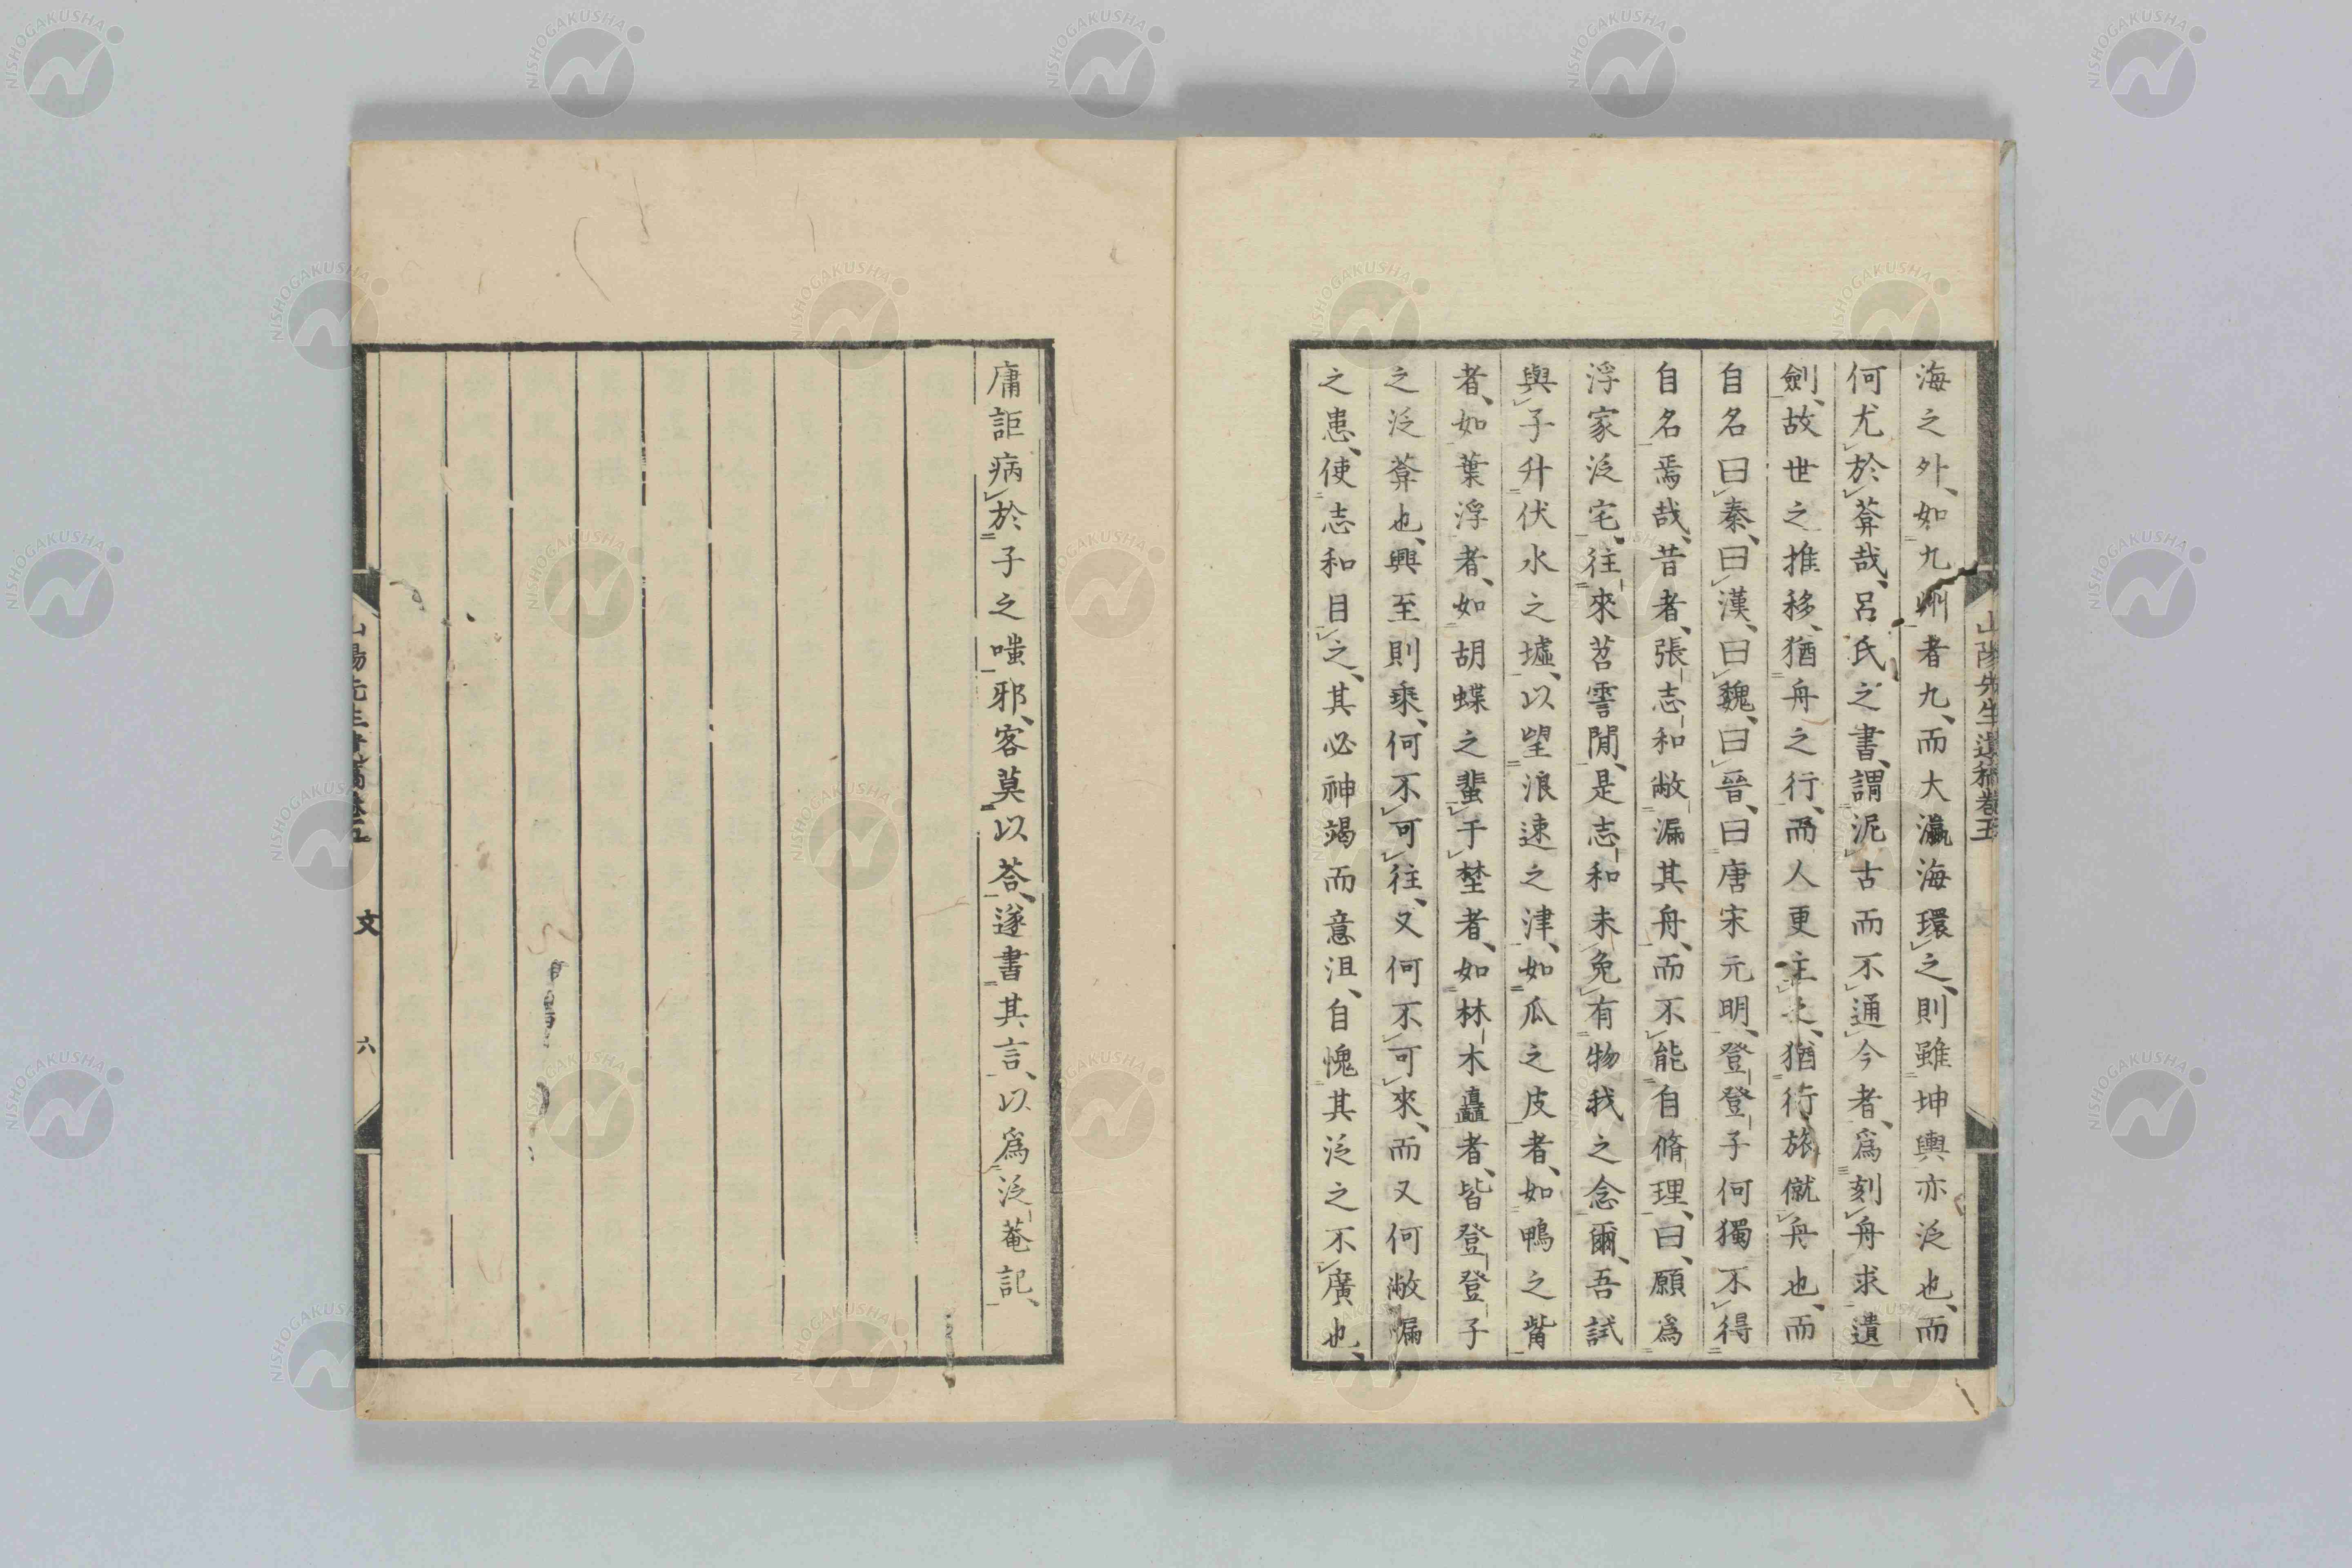 海之外、如九州者九、而大瀛海環之、則雖坤輿亦泛也、而
何尤於葊哉、呂氏之書、謂泥古而不通今者、爲刻舟求遺
劍、故世之推移、猶舟之行、而人更主之、猶行旅僦舟也、而
自名曰秦、曰漢、曰魏、曰晉、曰唐宋元明、登登子何獨不得
自名焉哉、昔者、張志和敝漏其舟、而不能自脩理、曰、願爲
浮家泛宅、往來苕霅閒、是志和未免有物我之念爾、吾試
與子升伏水之墟、以望浪速之津、如瓜之皮者、如鴨之觜
者、如葉浮者、如胡蝶之蜚于埜者、如林木矗者、皆登登子
之泛葊也、興至則乘、何不可往、又何不可來、而又何敝漏
之患、使志和目之、其必神竭而意沮、自愧其泛之不廣也、
山陽先生遺稿卷五
庸詎病於子之嗤邪、客莫以荅、遂書其言、以爲泛菴記、
山陽先生遺稿卷五
文
六
NISHOGAKUSHA